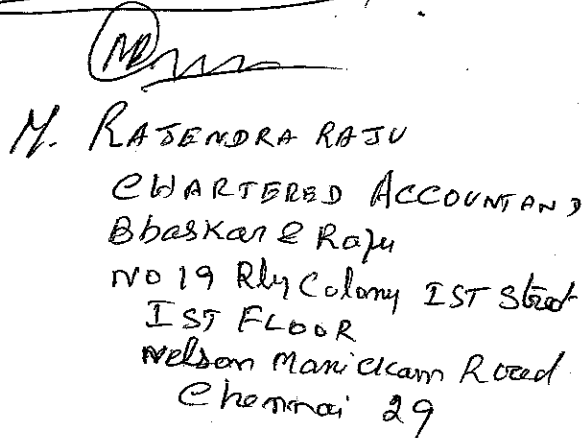 M. RAJENDRA RAJU
CHARTERED ACCOUNTANT
Bhaskar & Raju
NO 19 Rly Colony IST Street
IST FLOOR
Nelson Manickam Road
Chennai 29